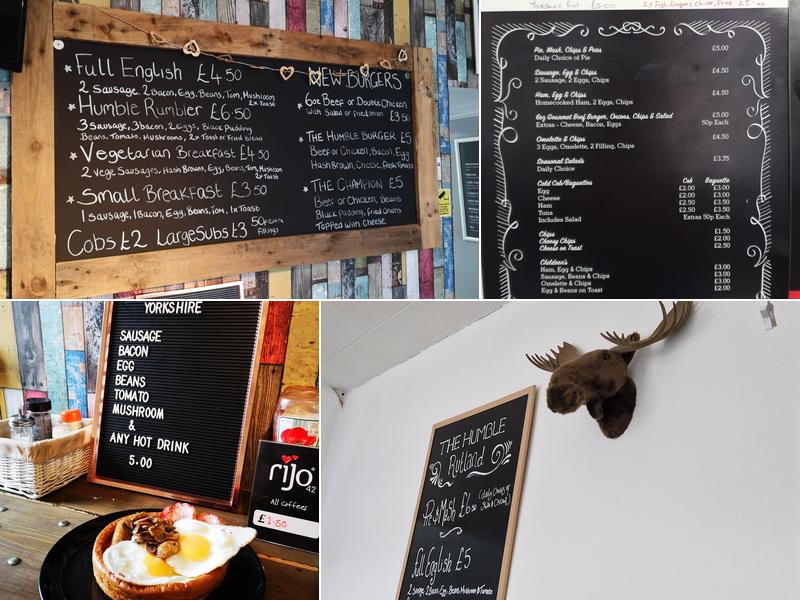 Full English £4.50
2 Sausage, 2 Bacon, Egg, Beans, Tom, Mushroom
2x Toast
Humble Rumbler £6.50
3 Sausage, 3 bacon, 2 Eggs, Black Pudding
Beans, Tomato, Mushrooms, 2x Toast or Fried bread
Vegetarian Breakfast £4.50
2 vege Sausages, Hash Browns, Egg, Beans, Tom, Mushroom
2x Toast
Small Breakfast £3.50
1 Sausage, 1 Bacon, Egg, Beans, Tom, 1x Toast
Cobs £2 Large Subs £3 50p Extra
Fillings
NEW BURGERS
6oz Beef or Double Chicken
with Salad or fried onion £3.50
THE HUMBLE BURGER £5
Beef or Chicken, Bacon, Egg
Hash Brown, Cheese, Fresh Tomato
THE CHAMPION £5
Beef or Chicken, Beans
Black pudding, Fried Onions
Topped with Cheese
Yorkshire Pud £5.00
2x Fish Fingers, Chips, Peas £5.00
Pie, Mash, Chips & Peas £5.00
Daily Choice of Pie
Sausage, Egg & Chips £4.50
2 Sausage, 2 Eggs, Chips
Ham, Egg & Chips £4.50
Homecooked Ham, 2 Eggs, Chips
6oz Gourmet Beef Burger, Onions, Chips & Salad £5.00
Extras - Cheese, Bacon, Eggs 50p Each
Omelette & Chips £4.50
3 Eggs, Omelette, 2 Filling, Chips
Seasonal Salads £3.75
Daily Choice
Cold Cob/Baguettes Cob Baguette
Egg £2.00 £3.00
Cheese £2.00 £3.00
Ham £2.50 £3.50
Tuna £2.50 £3.50
Includes Salad Extras 50p Each
Chips £1.50
Cheesy Chips £2.00
Cheese on Toast £2.50
Children's
Ham, Egg & Chips £3.00
Sausage, Beans & Chips £3.00
Omelette & Chips £3.00
Egg & Beans on Toast £2.00
YORKSHIRE
SAUSAGE
BACON
EGG
BEANS
TOMATO
MUSHROOM
&
ANY HOT DRINK
5.00
rijo
42
All Coffees
£1.50
THE HUMBLE
Rutland
Pie & Mash £6.50
Full English £5
2 Sausage, 2 Bacon, Egg, Beans, Mushroom & Tomato